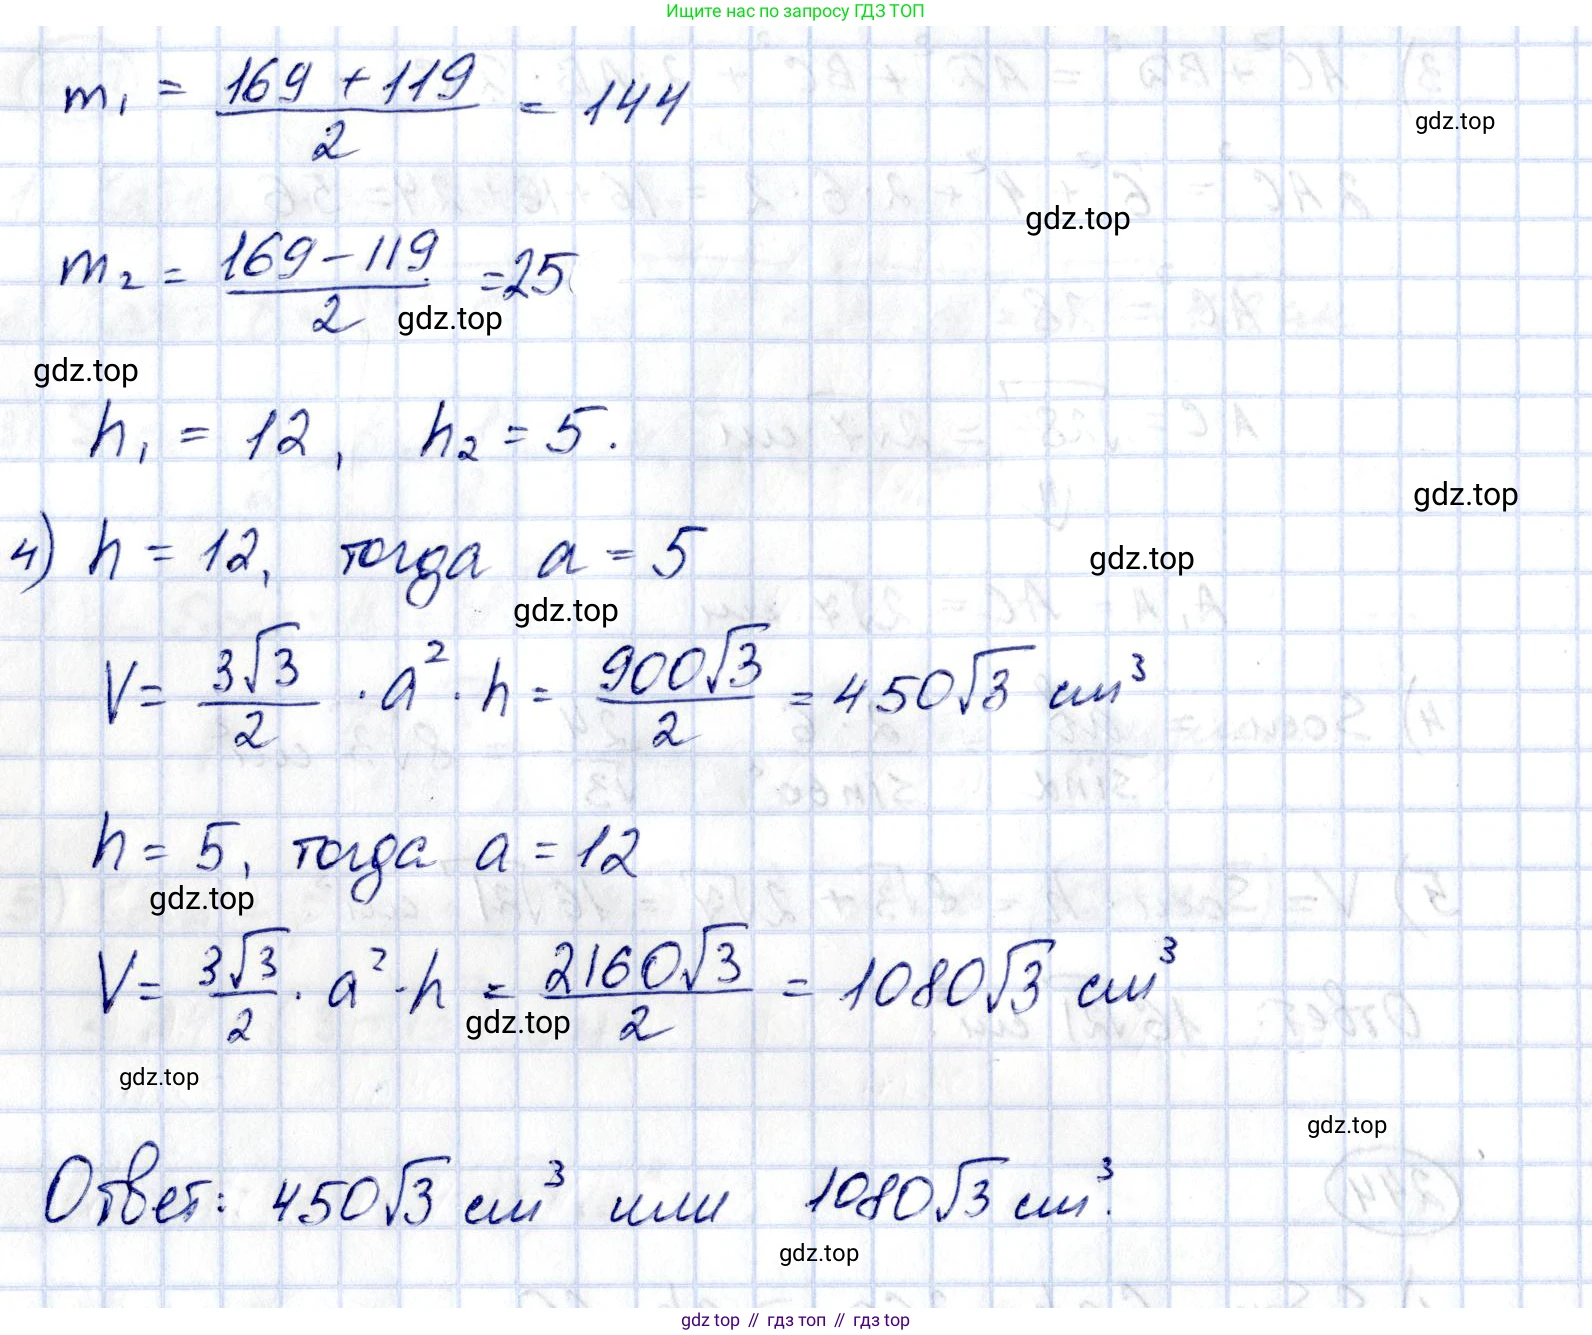 Ищите нас по запросу ГДЗ ТОП
m₁ = (169 + 119)/2 = 144
gdz.top
gdz.top
m₂ = (169 - 119)/2 = 25
gdz.top
gdz.top
h₁ = 12, h₂ = 5.
gdz.top
4) h = 12, тогда a = 5
gdz.top
gdz.top
V = 3√3/2 · a² · h = 900√3/2 = 450√3 см³
h = 5, тогда a = 12
gdz.top
V = 3√3/2 · a² · h = 2160√3/2 = 1080√3 см³
gdz.top
gdz.top
gdz.top
Ответ: 450√3 см³ или 1080√3 см³.
gdz.top
gdz top // гдз топ // гдз top